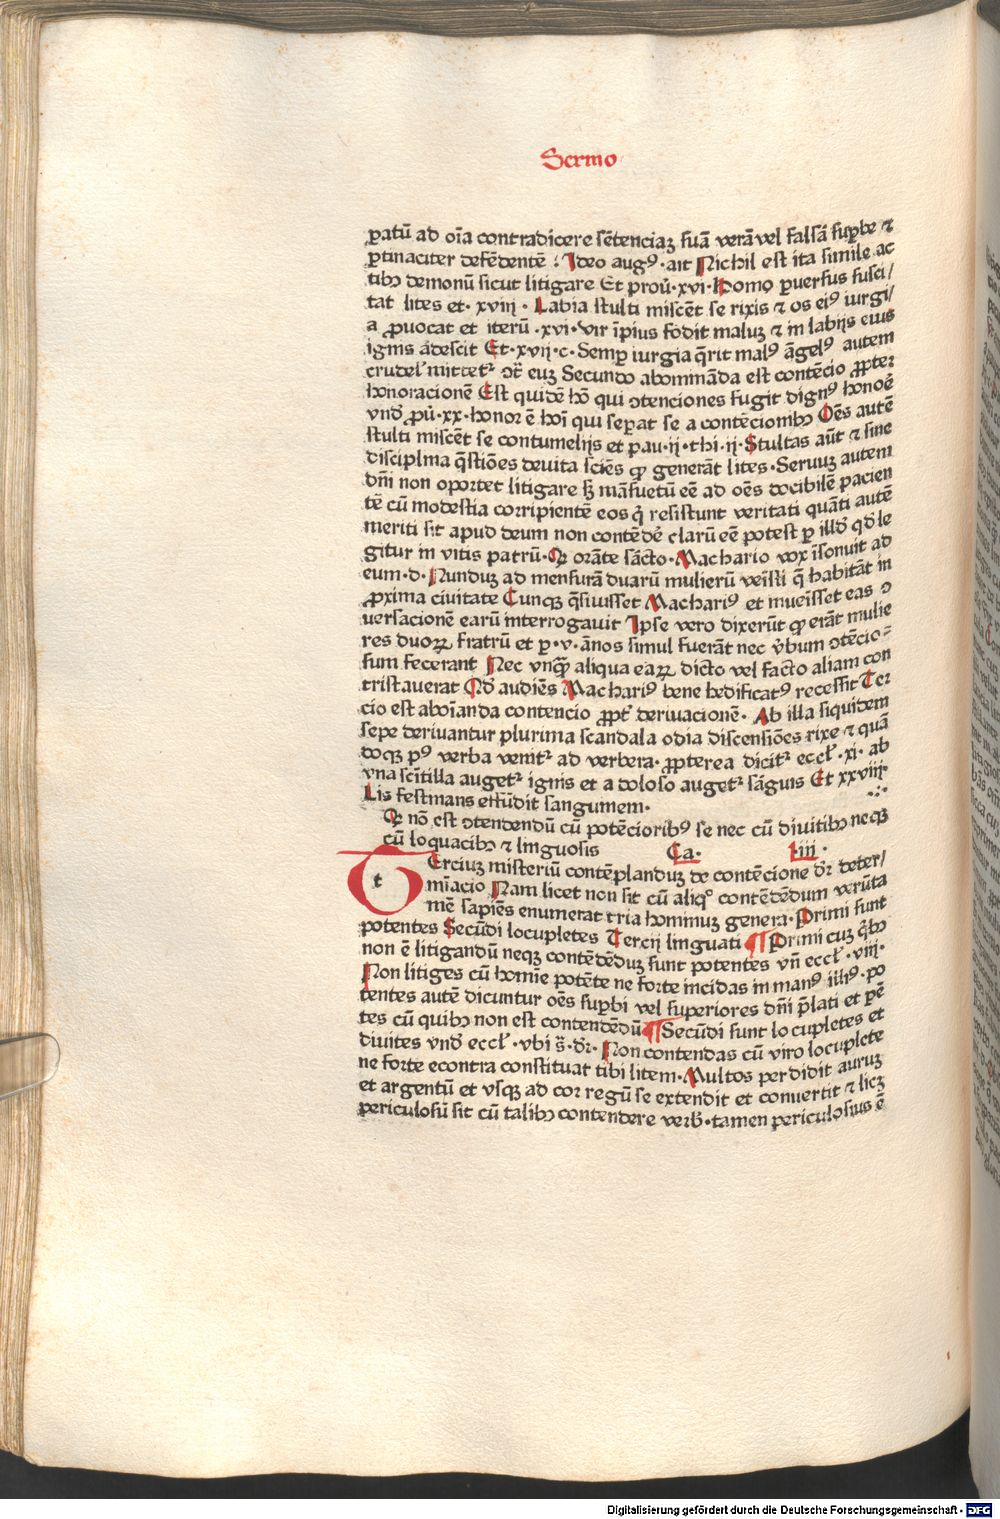 Sermo
ꝑatū ad oīa contradicere sētenciaꝫ suā verā vel falsā suꝑbe ⁊
ꝑtinaciter defēdentē : Ideo augꝰ· ait Nichil est ita simile ac
tibꝫ demonū sicut litigare Et prou̅·xvi·Homo ꝑuersus susci/
tat lites et· xviij · Labia stulti miscēt se rixis ⁊ os eiꝰ iurgi/
a ꝓuocat et iterū ·xvi·vir īpius fodit maluꝫ ⁊ in labijs eius
ignis ādescit Et·xvij·c·Semꝑ iurgia q̄rit malꝰ āgelꝰ autem
crudel̕ mittet᷑ ↄt̄ euꝫ Secundo abomināda est contēcio ꝓpter
honoracionē Est quidē hō qui ↄtenciones fugit dignꝰ honoē
vnd̕ ꝓu̅·xx·honor ē hoī qui seꝑat se a contēcionibꝫ Oēs autē
stulti miscēt se contumelijs et pau·ij·thi·ij·Stultas aūt ⁊ sine
disciplina q̄stiōes deuita sciēs ꝙ generāt lites·Seruuꝫ autem
dn̄i non oportet litigare sꝫ māsuetū eē ad oēs docibilē pacien
tē cū modestia corripientē eos q̇ resistunt veritati quāti autē
meriti sit apud deum non contēdē clarū eē potest ꝑ illd̕ qd̕ le
gitur in vitis patrū·Qꝛ orāte sācto·Machario vox īsonuit ad
eum·d·Nunduꝫ ad mensurā duarū mulierū veīsti q̄ habitāt in
ꝓxima ciuitate Cunqꝫ q̄siuisset Machariꝰ et inueīsset eas ↄ
uersacionē earū interrogauit Ipse vero dixerūt ꝙ erāt mulie
res duoꝝ fratrū et ꝑ·v·ānos simul fuerāt nec v̕bum ↄtēcio⸗
sum fecerant Nec vnqꝫ̄ aliqua eaꝝ dicto vel facto aliam con
tristauerat Qd̕ audiēs Machariꝰ bene hedificatꝰ recessit Ter
cio est aboīanda contencio ꝓpt̕ deriuacionē· Ab illa siquidem
sepe deriuantur plurima scandala odia discensiōes rixe ⁊ quā
doqꝫ pꝰ verba venit᷑ ad verbera·ꝓpterea dicit᷑ eccl̕·xi·ab
vna scītilla auget᷑ ignis et a doloso auget᷑ sāguis Et xxviij·
Lis festinans effūdit sanguinem·
Qꝛ nō est ↄtendendū cū potēcioribꝰ se nec cū diuitibꝫ neqꝫ
cū loquacibꝫ ⁊ linguosis Ca· ·iij·
t Ercius misteriū contēplanduꝫ de contēcione dr̄ deter/
mīacio Nam licet non sit cū aliqº contēdēdum verūta
mē sapiēs enumerat tria hominuꝫ genera·Primi sunt
potentes Secūdi locupletes Tercij linguati ¶Primi cuꝫ q̇bꝫ
non ē litigandū neqꝫ contēdēduꝫ sunt potentes vn̄ eccl̕·viij·
Non litiges cū homīe potēte ne forte incidas in manꝰ illiꝰ·po
tentes autē dicuntur oēs suꝑbi vel superiores dn̄i p̄lati et pē
tes cū quibꝫ non est contendēdū ¶Secūdi sunt locupletes et
diuites vnd̕ eccl̕·vbi s̄·dr̄·Non contendas cū viro locuplete
ne forte econtra constituat tibi litem·Multos perdidit auruꝫ
et argentū et vsqꝫ ad cor regū se extendit et conuertit ⁊ licꝫ
periculosū sit cū talibꝫ contendere verb̕·tamen periculosius ē
Digitalisierung gefördert durch die Deutsche Forschungsgemeinschaft - DFG